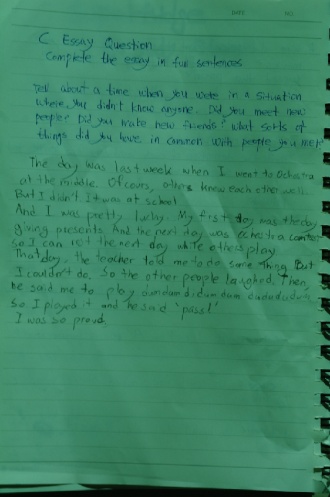 C Essay Question
Complete the essay in full sentences
Tell about a time when you were in a situation
where you didn't know anyone. Did you meet new
people? Did you make new friends? what sorts of
things did you have in common with people you met?
The day was last week when I went to Ochestra
at the middle. Of cours, others knew each other well.
But I didn't. It was at school.
And I was pretty lucky. My first day was the day
giving presents. And the next day was Ochestra
so I can not the next day while others play
That day, the teacher told me to do some thing. But
I couldn't do. So the other people laughed. Then,
he said me to play
So I played it and he said 'pass!'
I was so proud